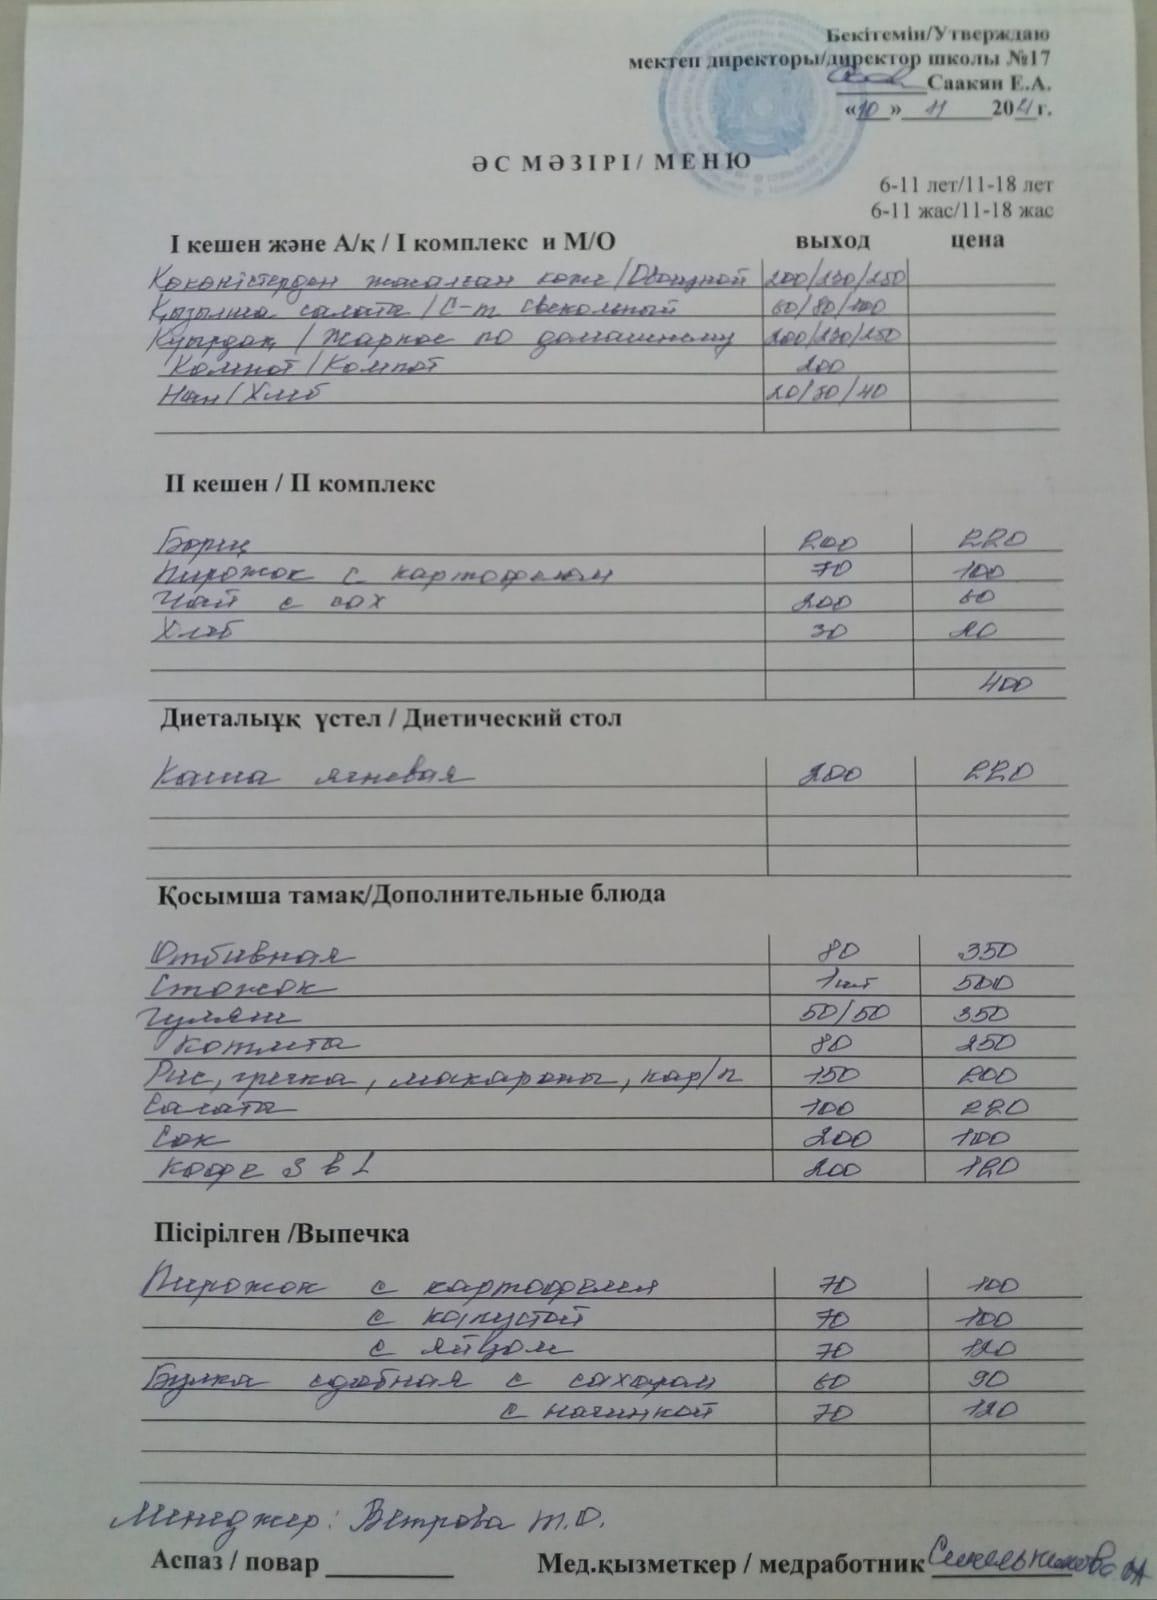 Бекітемін/Утверждаю
мектеп директоры/директор школы №17
Саакян Е.А.
«10» 11 2021г.
ӘС МӘЗІРІ/ МЕНЮ
6-11 лет/11-18 лет
6-11 жас/11-18 жас
І кешен және А/қ / І комплекс и М/О выход цена
Көкөністерден жасалған көже/Овощной 200/230/250
Қызылша салаты/С-т свекольный 60/80/100
Қуырдақ/Жаркое по домашнему 200/230/250
Компот/Компот 200
Нан/Хлеб 20/30/40
ІІ кешен / ІІ комплекс
Борщ 200 220
Пирожок с картофелем 70 100
Чай с сах 200 60
Хлеб 30 20
400
Диеталыұқ үстел / Диетический стол
Каша ячневая 200 220
Қосымша тамақ/Дополнительные блюда
Отбивная 80 350
Стожок 1шт 500
Гуляш 50/50 350
Котлета 80 250
Рис, гречка, макароны, кар/п 150 200
Салаты 100 220
Сок 200 100
Кофе 3 в 1 200 120
Пісірілген /Выпечка
Пирожок с картофелем 70 100
с капустой 70 100
с яйцом 70 120
Булка сдобная с сахаром 60 90
с начинкой 70 120
Менеджер: Ветрова Т.О.
Аспаз / повар Мед.қызметкер / медработник